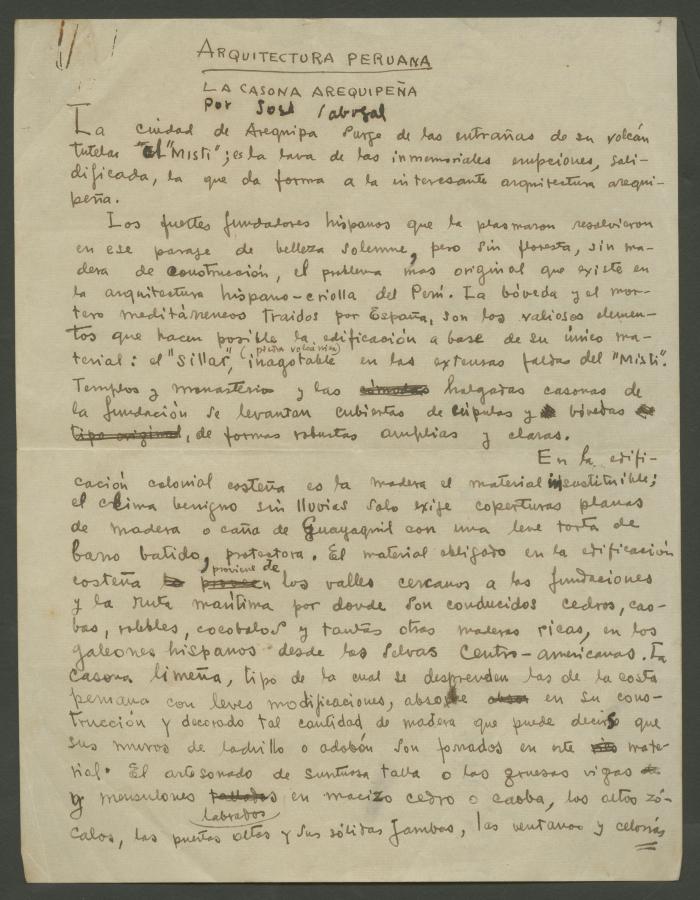 ARQUITECTURA PERUANA
LA CASONA AREQUIPEÑA
Por José Sabogal
La ciudad de Arequipa surge de las entrañas de su volcán
tutelar "El "Misti"; es la lava de las inmemoriales erupciones, soli-
dificada, la que da forma a la interesante arquitectura arequi-
peña.
Los fuertes fundadores hispanos que la plasmaron resolvieron
en ese paraje de belleza solemne, pero sin floresta, sin ma-
dera de construcción, el problema mas original que existe en
la arquitectura hispano-criolla del Perú. La bóveda y el mor-
tero mediterráneos traidos por España, son los valiosos elemen-
tos que hacen posible la edificación a base de su único ma-
(piedra volcánica)
terial: el "Sillar", inagotable en las extensas faldas del "Misti".
Templos y monasterios y las cómodas holgadas casonas de
la fundación se levantan cubiertas de cúpulas y bóvedas
tipo original, de formas robustas amplias y claras.
En la edifi-
cación colonial costeña es la madera el material insustituible;
el clima benigno sin lluvias solo exije coperturas planas
de madera o caña de Guayaquil con una leve torta de
barro batido, protectora. El material obligado en la edificación
proviene de
costeña los valles cercanos a las fundaciones
y la ruta marítima por donde son conducidos cedros, cao-
bas, robles, cocobolos y tantas otras maderas ricas, en los
galeones hispanos desde las selvas Centro-americanas. La
casona limeña, tipo de la cual se desprenden las de la costa
peruana con leves modificaciones, absorbe en su cons-
trucción y decorado tal cantidad de madera que puede decirse que
sus muros de ladrillo o adobón son forrados en este mate-
rial. El artesonado de suntuosa talla o las gruesas vigas
y mensulones tallados en macizo cedro o caoba, los altos zó-
labrados
calos, las puertas altas y sus sólidas jambas, las ventanas y celosías